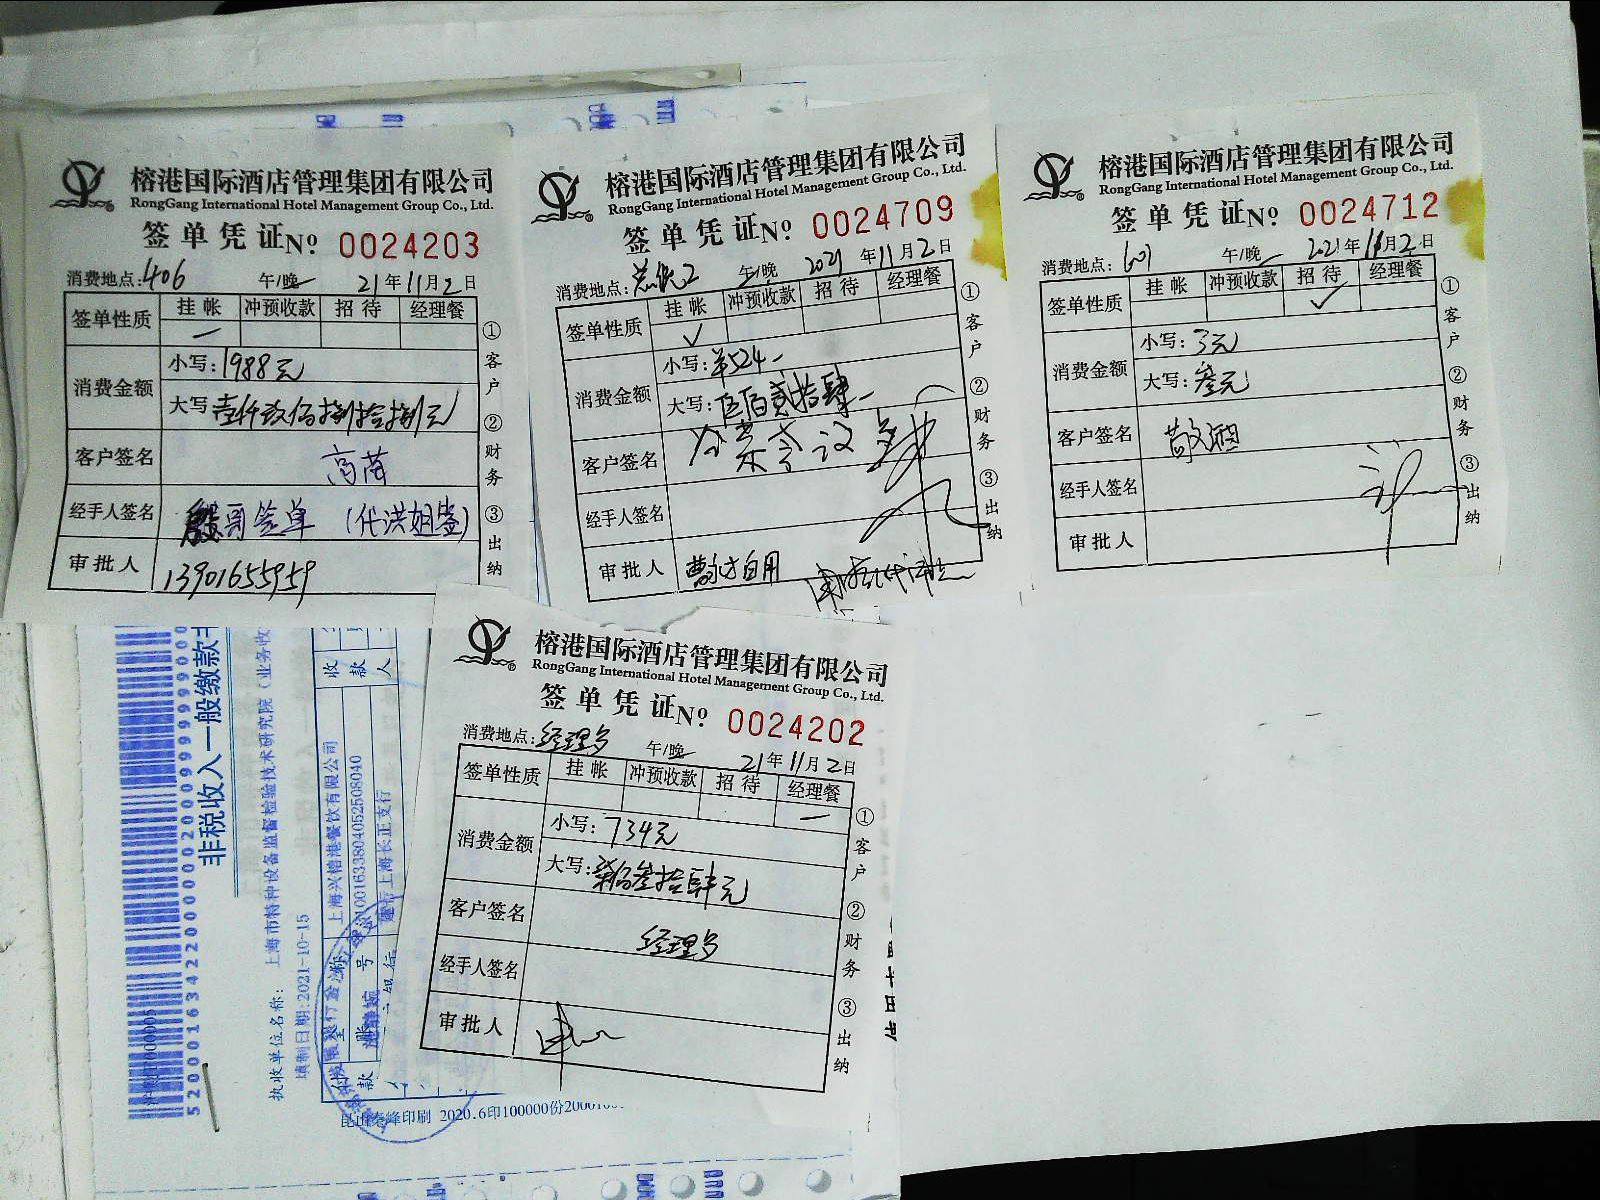 榕港国际酒店管理集团有限公司
RongGang International Hotel Management Group Co., Ltd.
签单凭证№ 0024203
消费地点:406 午/晚 21年11月2日
签单性质 挂帐 冲预收款 招待 经理餐
消费金额 小写:1988元
大写 壹仟玖佰捌拾捌元
客户签名 高苗
经手人签名 殷哥签单 (代洪姐签)
审批人 13901655959
①客户 ②财务 ③出纳
榕港国际酒店管理集团有限公司
RongGang International Hotel Management Group Co., Ltd.
签单凭证№ 0024709
消费地点: 午/晚 2021年11月2日
签单性质 挂帐 冲预收款 招待 经理餐
✓
消费金额 小写:524
大写:伍佰贰拾肆
客户签名
经手人签名
审批人
①客户 ②财务 ③出纳
榕港国际酒店管理集团有限公司
RongGang International Hotel Management Group Co., Ltd.
签单凭证№ 0024712
消费地点:601 午/晚 2021年11月2日
签单性质 挂帐 冲预收款 招待 经理餐
✓
消费金额 小写:3元
大写:叁元
客户签名
经手人签名
审批人
①客户 ②财务 ③出纳
榕港国际酒店管理集团有限公司
RongGang International Hotel Management Group Co., Ltd.
签单凭证№ 0024202
消费地点:经理 午/晚 21年11月2日
签单性质 挂帐 冲预收款 招待 经理餐
消费金额 小写:734元
大写:柒佰叁拾肆元
客户签名 经理
经手人签名
审批人
①客户 ②财务 ③出纳
非税收入一般缴款书
执收单位名称: 上海市特种设备监督检验技术研究院(业务收
填制日期:2021-10-15
收款人
上海兴榕港餐饮有限公司
31001633804052508040
建行上海长正支行
昆山秦峰印刷 2020.6印100000份